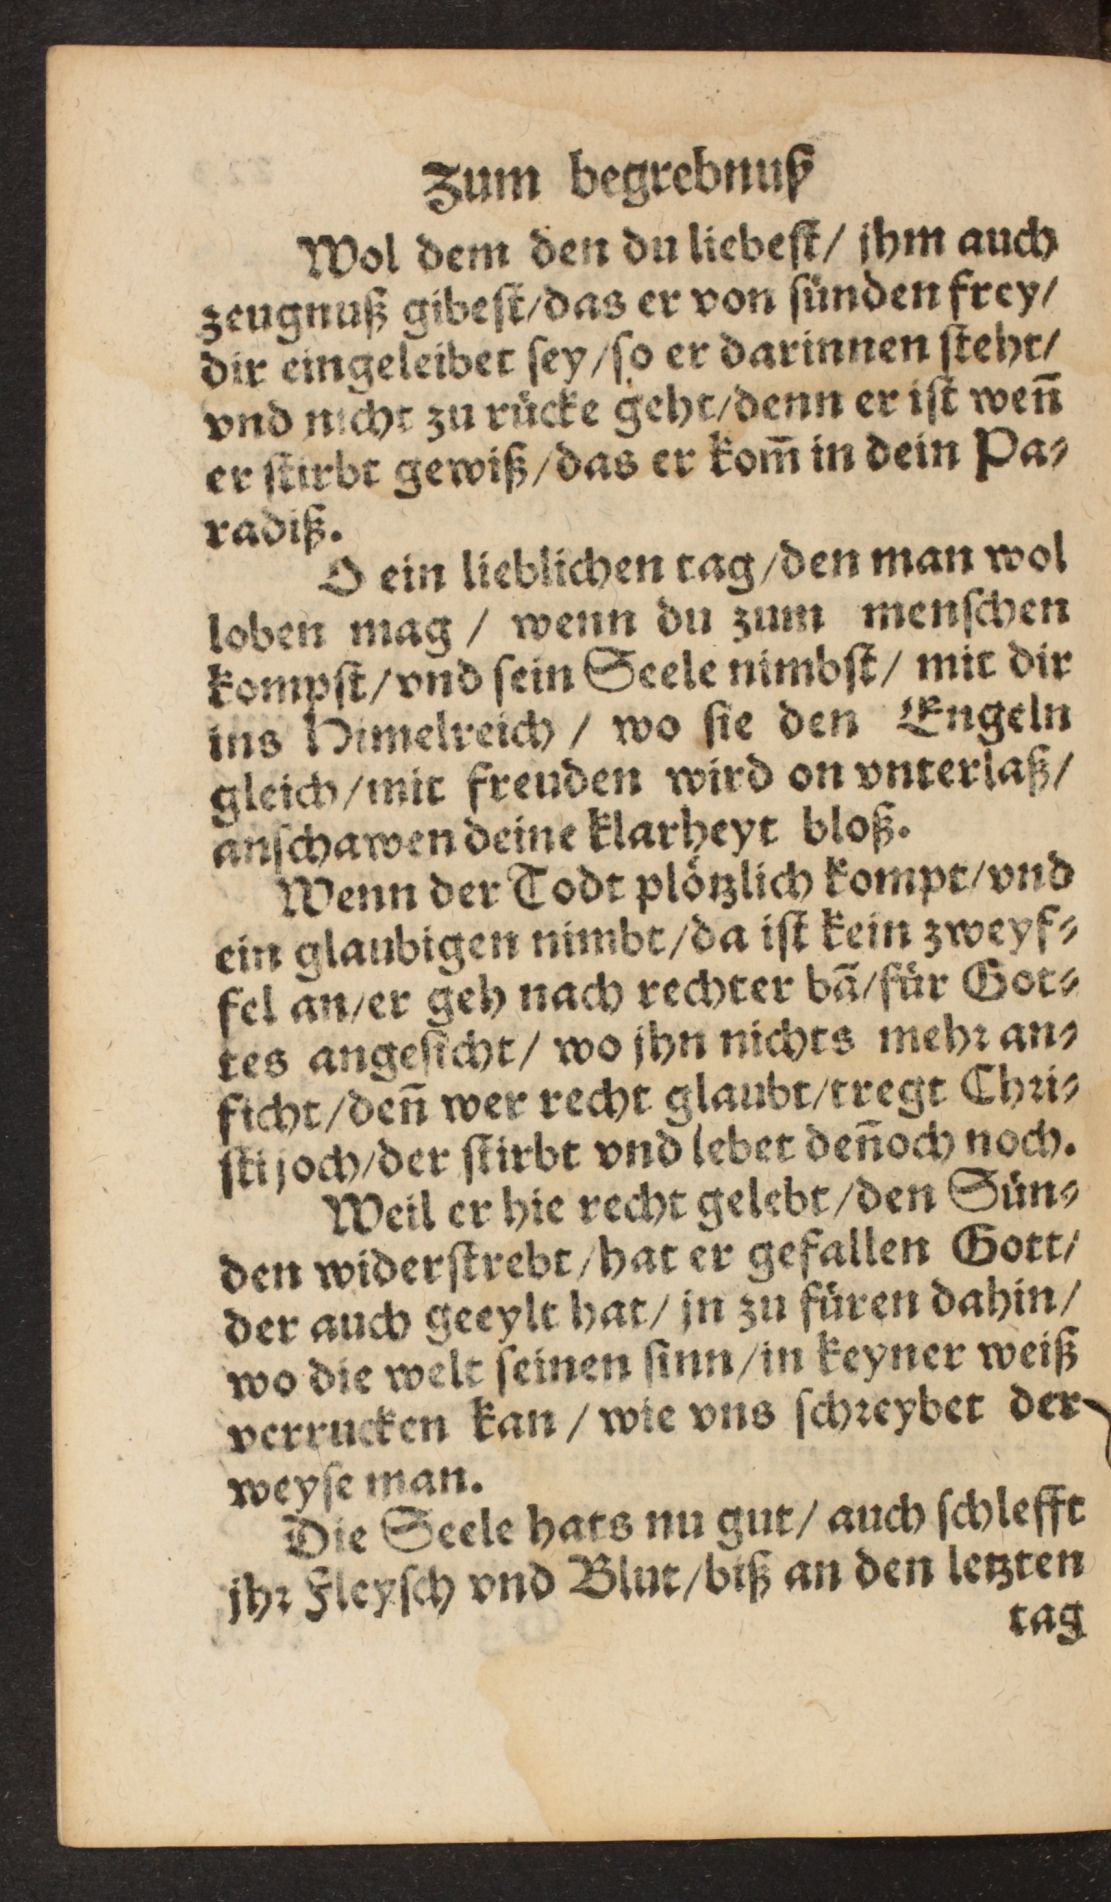 Zum begrebnuß
Wol dem den du liebeſt/ jhm auch
zeugnuß gibeſt/das er von ſünden frey/
dir eingeleibet ſey/ſo er darinnen ſteht/
vnd nicht zu rücke geht/denn er iſt weñ
er ſtirbt gewiß/das er kom̃ in dein Pa⸗
radiß.
O ein lieblichen tag/den man wol
loben mag / wenn du zum menſchen
kompſt/vnd ſein Seele nimbſt/ mit dir
ins Himelreich / wo ſie den Engeln
gleich/mit freuden wird on vnterlaß/
anſchawen deine klarheyt bloß.
Wenn der Todt plötzlich kompt/vnd
ein glaubigen nimbt/da iſt kein zweyf⸗
fel an/er geh nach rechter bã/für Got⸗
tes angeſicht/ wo jhn nichts mehr an⸗
ficht/deñ wer recht glaubt/tregt Chri⸗
ſti joch/der ſtirbt vnd lebet deñoch noch.
Weil er hie recht gelebt/den Sün⸗
den widerſtrebt/hat er gefallen Gott/
der auch geeylt hat/ jn zu füren dahin/
wo die welt ſeinen ſinn/in keyner weiß
verrucken kan / wie vns ſchreybet der
weyſe man.
Die Seele hats nu gut/ auch ſchlefft
jhr Fleyſch vnd Blut/biß an den letzten
tag